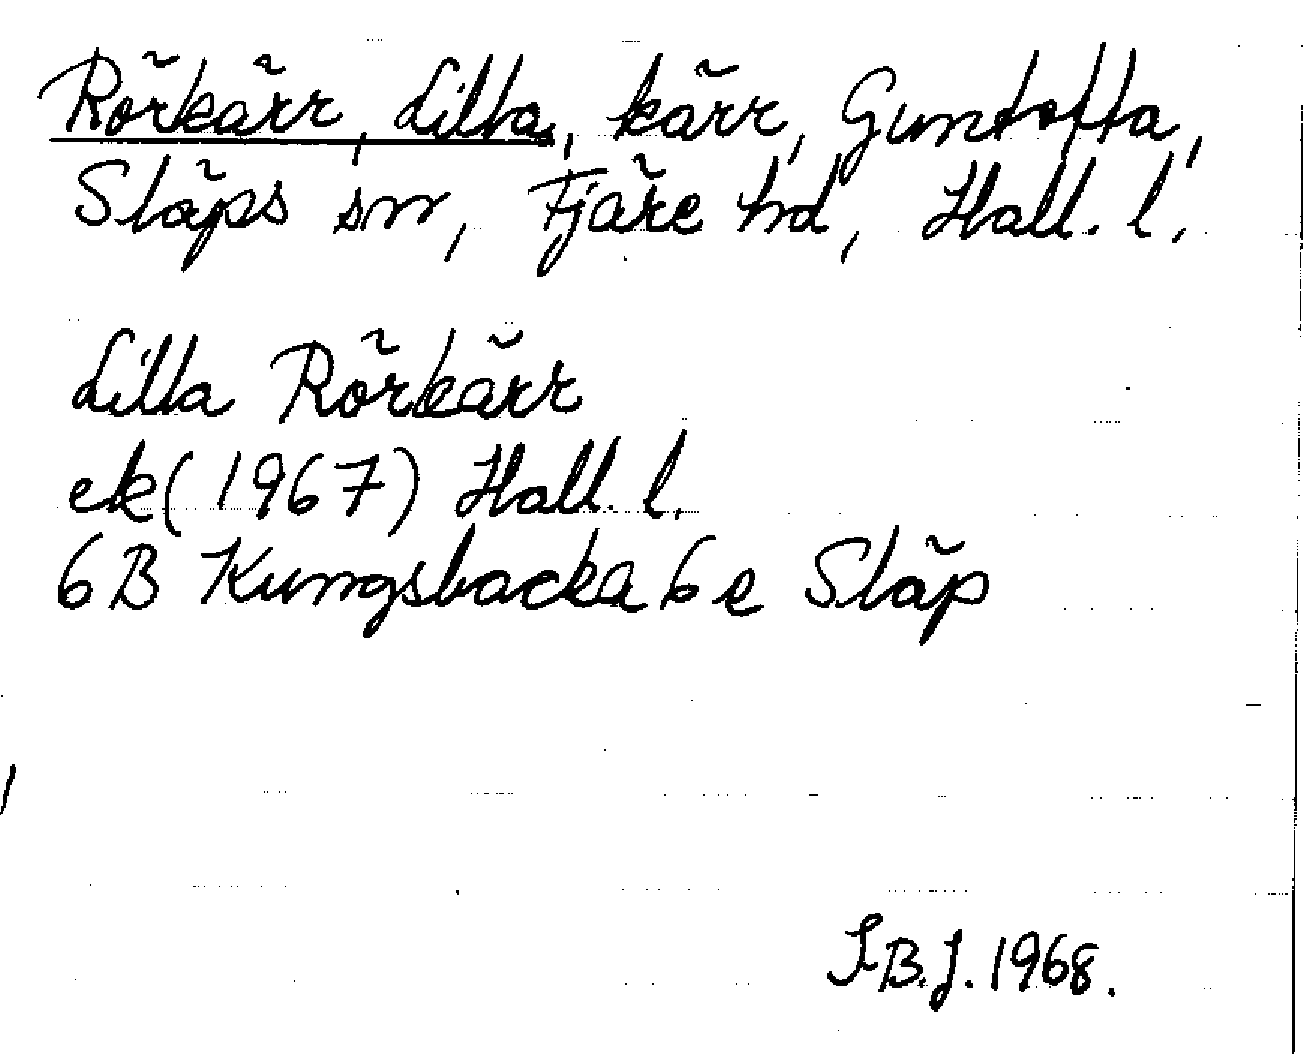 Rörkärr, Lilla, kärr, Guntofta,
Släps sn, Fjäre hd, Hall. l.
Lilla Rörkärr
ek(1967) Hall. l.
6B Kungsbacka 6 e Släp
I.B.J. 1968.